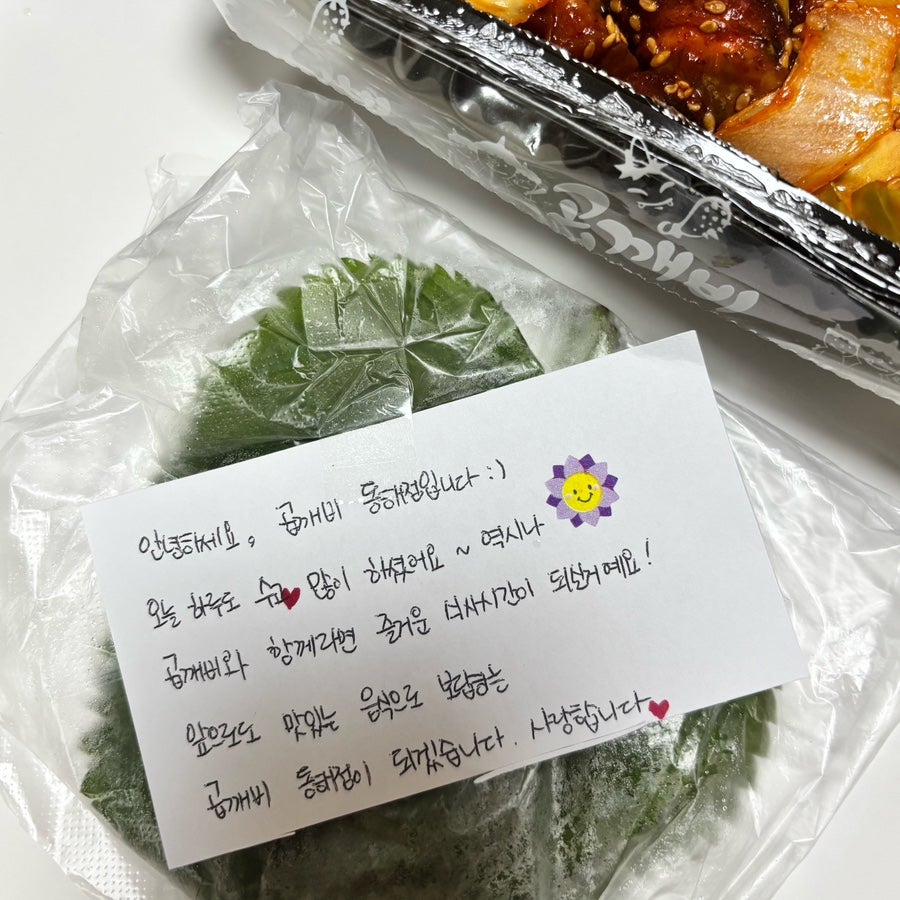 안녕하세요, 곱깨비 동해점입니다 :)
오늘 하루도 수고 많이 하셨어요 ~ 역시나
곱깨비와 함께라면 즐거운 식사시간이 되신거예요!
앞으로도 맛있는 음식으로 보답하는
곱깨비 동해점이 되겠습니다. 사랑합니다